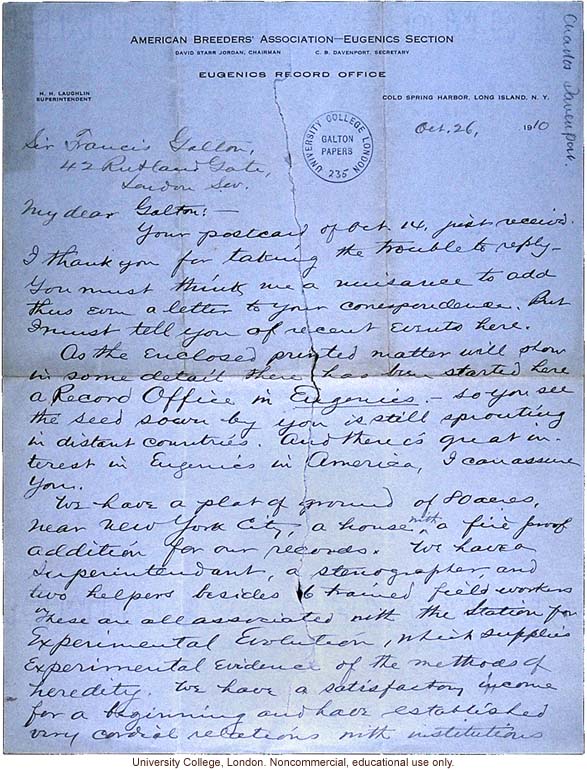 AMERICAN BREEDERS' ASSOCIATION—EUGENICS SECTION
DAVID STARR JORDAN, CHAIRMAN C. B. DAVENPORT, SECRETARY
EUGENICS RECORD OFFICE
H. H. LAUGHLIN
SUPERINTENDENT
COLD SPRING HARBOR, LONG ISLAND, N. Y.
Charles Davenport.
UNIVERSITY COLLEGE LONDON
GALTON
PAPERS
235
Oct. 26, 1910
Sir Francis Galton,
42 Rutland Gate,
London S.W.
My dear Galton:—
Your postcard of Oct. 14, just received.
I thank you for taking the trouble to reply—
You must think me a nuisance to add
thus even a letter to your correspondence. But
I must tell you of recent events here.
As the enclosed printed matter will show
in some detail there has been started here
a Record Office in Eugenics. — so you see
the seed sown by you is still sprouting
in distant countries. And there is great in-
terest in Eugenics in America, I can assure
you.
We have a plat of ground of 80 acres,
near New York City, a house with a fire proof
addition for our records. We have a
Superintendant, a stenographer, and
two helpers besides 6 trained field workers
These are all associated with the Station for
Experimental Evolution, which supplies
Experimental evidence of the methods of
heredity. We have a satisfactory income
for a beginning and have established
very cordial relations with institutions
University College, London. Noncommercial, educational use only.